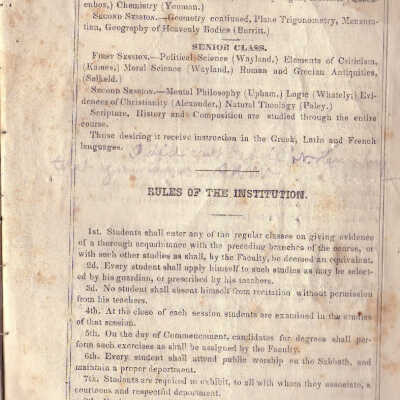 enbos,) Chemistry (Yeoman.)
SECOND SESSION.—Geometry continued, Plane Trigonometry, Mensuration, Geography of Heavenly Bodies (Burritt.)
SENIOR CLASS.
FIRST SESSION.—Political Science (Wayland.) Elements of Criticism,
(Kames,) Moral Science (Wayland.) Roman and Grecian Antiquities,
(Salkeld.)
SECOND SESSION.—Mental Philosophy (Upham.) Logic (Whately;) Evidences of Christianity (Alexander.) Natural Theology (Paley.)
Scripture, History and Composition are studied through the entire
course.
Those desiring it receive instruction in the Greek, Latin and French
languages.
RULES OF THE INSTITUTION.
1st. Students shall enter any of the regular classes on giving evidence
of a thorough acquaintance with the preceding branches of the course, or
with such other studies as shall, by the Faculty, be deemed an equivalent.
2d. Every student shall apply himself to such studies as may be selected
by his guardian, or prescribed by his teachers.
3d. No student shall absent himself from recitation without permission
from his teachers.
4th. At the close of each session students are examined in the studies
of that session.
5th. On the day of Commencement, candidates for degrees shall perform such exercises as shall be assigned by the Faculty.
6th. Every student shall attend public worship on the Sabbath, and
maintain a proper department.
7th. Students are required to exhibit, to all with whom they associate, a
courteous and respectful department.